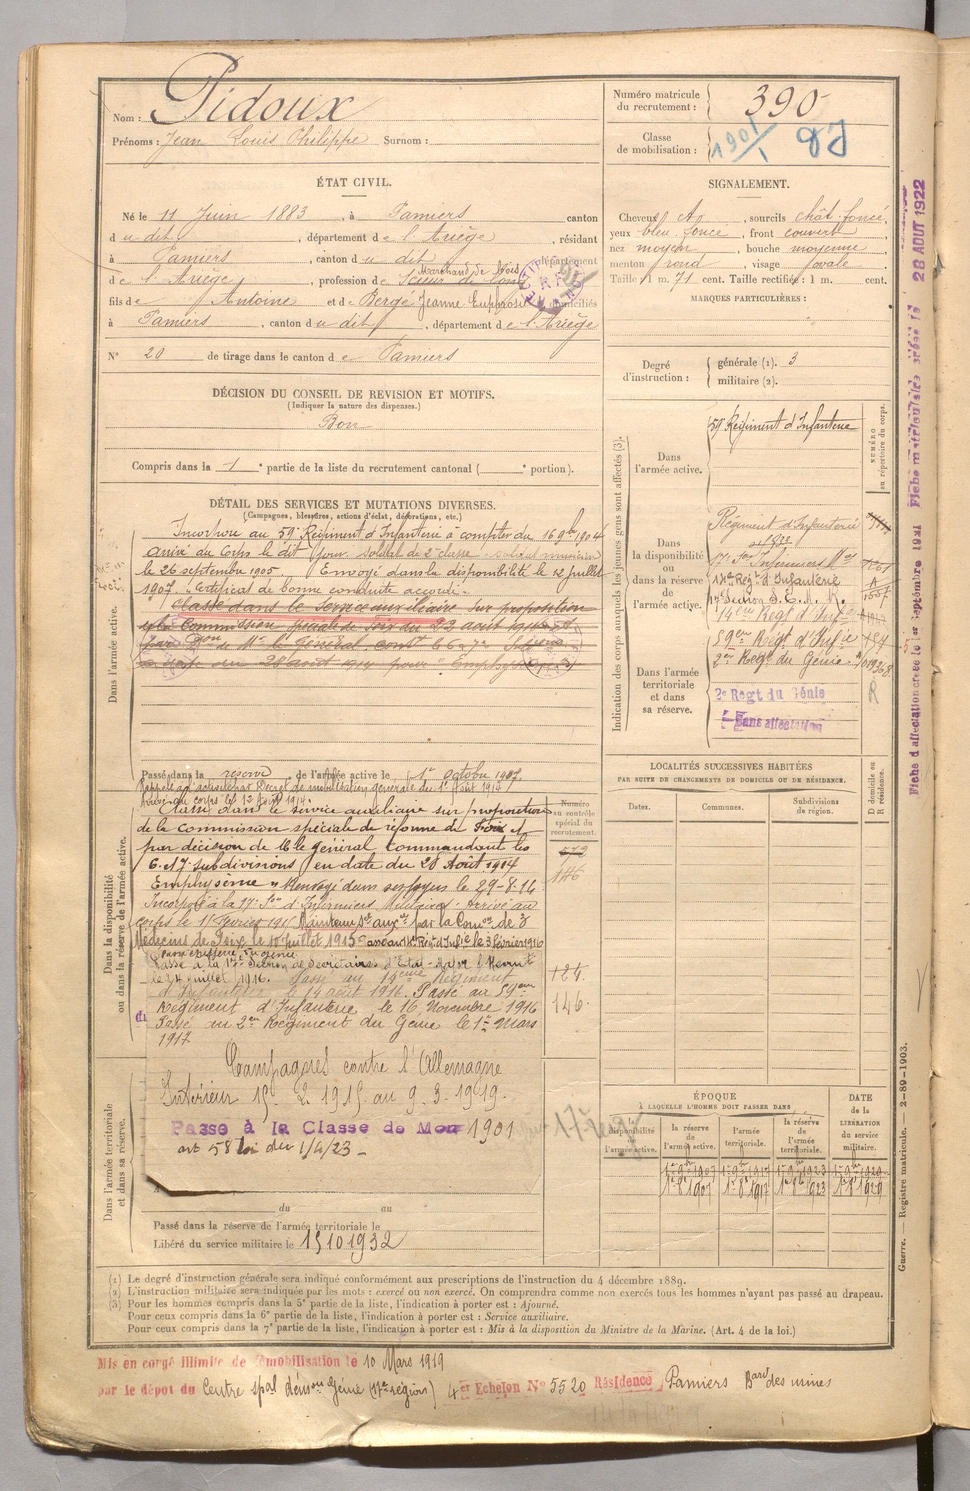 Nom : Pidoux
Prénoms : Jean Louis Philippe Surnom :
Numéro matricule du recrutement : 390
Classe de mobilisation : 1901/1
ÉTAT CIVIL.
Né le 11 Juin 1883, à Pamiers canton
du dit, département de l'Ariège, résidant
à Pamiers, canton du dit département
de l'Ariège, profession de Scieur de long Marchand de bois
fils de Antoine et de Berge Jeanne Euphrosine domiciliés
à Pamiers, canton du dit, département de l'Ariège
N° 20 de tirage dans le canton de Pamiers
SIGNALEMENT.
Cheveux ch, sourcils chât. foncé,
yeux bleu foncé, front couvert
nez moyen, bouche moyenne
menton rond, visage ovale
Taille : 1 m. 71 cent. Taille rectifiée : 1 m. cent.
MARQUES PARTICULIÈRES :
Degré d'instruction : générale (1). 3
militaire (2).
DÉCISION DU CONSEIL DE REVISION ET MOTIFS.
(Indiquer la nature des dispenses.)
Bon
Compris dans la 1e partie de la liste du recrutement cantonal ( e portion).
DÉTAIL DES SERVICES ET MUTATIONS DIVERSES.
(Campagnes, blessures, actions d'éclat, décorations, etc.)
Dans l'armée active.
Incorporé au 59e Régiment d'Infanterie à compter du 16 9bre 1904
arrivé au Corps le dit jour soldat de 2e classe. soldat musicien
le 26 septembre 1905 Envoyé dans la disponibilité le 12 juillet
1907. "Certificat de bonne conduite accordé".
Classé dans le Service auxiliaire sur proposition
de la Commission spéciale de Foix du 23 août 1914
Passé dans la réserve de l'armée active le 1er octobre 1907.
Rappelé à l'activité par Décret de mobilisation générale du 1er Août 1914
Arrivé au corps le 12 Août 1914.
Dans la disponibilité ou dans la réserve de l'armée active.
Classé dans le service auxiliaire sur proposition
de la commission spéciale de réforme de Foix et
par décision de M. le général Commandant les
6 et 7 subdivisions en date du 28 Août 1914
Emphysème " Renvoyé dans ses foyers le 29-8-14
Incorporé à la 17e Son d'Infirmiers Militaires. Arrivé au
corps le 15 février 1915 Maintenu Sce auxre par la Comon de 3
Médecins de Foix le 10 juillet 1915 Passé au 14e Regt d'Infie le 3 février 1916
Passé à la 17e Section de Secrétaires d'État-Major & Recrutt
le 24 juillet 1916. Passé au 14ème Régiment
d'Infanterie le 14 août 1916. Passé au 59ème
Régiment d'Infanterie le 16 Novembre 1916
Passé au 2ème Régiment du Génie le 1er Mars
1917
Campagnes contre l'Allemagne
Intérieur 15. 2. 1915. au 9. 3. 1919.
Passé à la Classe de Mon 1901
art 58 loi du 1/4/23 -
Numéro au contrôle spécial du recrutement.
579
146
124.
146.
Dans l'armée territoriale et dans sa réserve.
du au
Passé dans la réserve de l'armée territoriale le
Libéré du service militaire le 15 10 1932
Indication des corps auxquels les jeunes gens sont affectés (3).
NUMÉRO au répertoire du corps.
Dans l'armée active.
59e Régiment d'Infanterie
Dans la disponibilité ou dans la réserve de l'armée active.
Régiment d'Infanterie
17e Son Infirmiers Mres
14e Regt d'Infanterie
17e Section S. E. M. R.
14ème Regt d'Infie
59ème Regt d'Infie
2ème Regt du Génie
Dans l'armée territoriale et dans sa réserve.
2e Regt du Génie
Sans affectation
LOCALITÉS SUCCESSIVES HABITÉES
PAR SUITE DE CHANGEMENTS DE DOMICILE OU DE RÉSIDENCE.
Dates. Communes. Subdivisions de région. D domicile ou R résidence.
ÉPOQUE
À LAQUELLE L'HOMME DOIT PASSER DANS
la disponibilité de l'armée active. la réserve de l'armée active. l'armée territoriale. la réserve de l'armée territoriale. DATE de la LIBÉRATION du service militaire.
1er 8bre 1907 1er 8bre 1917 1er 8bre 1923 1er 8bre 1929
(1) Le degré d'instruction générale sera indiqué conformément aux prescriptions de l'instruction du 4 décembre 1889.
(2) L'instruction militaire sera indiquée par les mots : exercé ou non exercé. On comprendra comme non exercés tous les hommes n'ayant pas passé au drapeau.
(3) Pour les hommes compris dans la 5e partie de la liste, l'indication à porter est : Ajourné.
Pour ceux compris dans la 6e partie de la liste, l'indication à porter est : Service auxiliaire.
Pour ceux compris dans la 7e partie de la liste, l'indication à porter est : Mis à la disposition du Ministre de la Marine. (Art. 4 de la loi.)
Mis en congé illimité de démobilisation le 10 Mars 1919
par le dépôt du Centre spal démon Génie (17e région) 4er Echelon N° 5520 Résidence Pamiers Bard des mines
Guerre. — Registre matricule. — 2-89-1903.
Fiche d'affectation créée le 1er Septembre 1921 Fiche matriculaire créée le 28 AOUT 1922